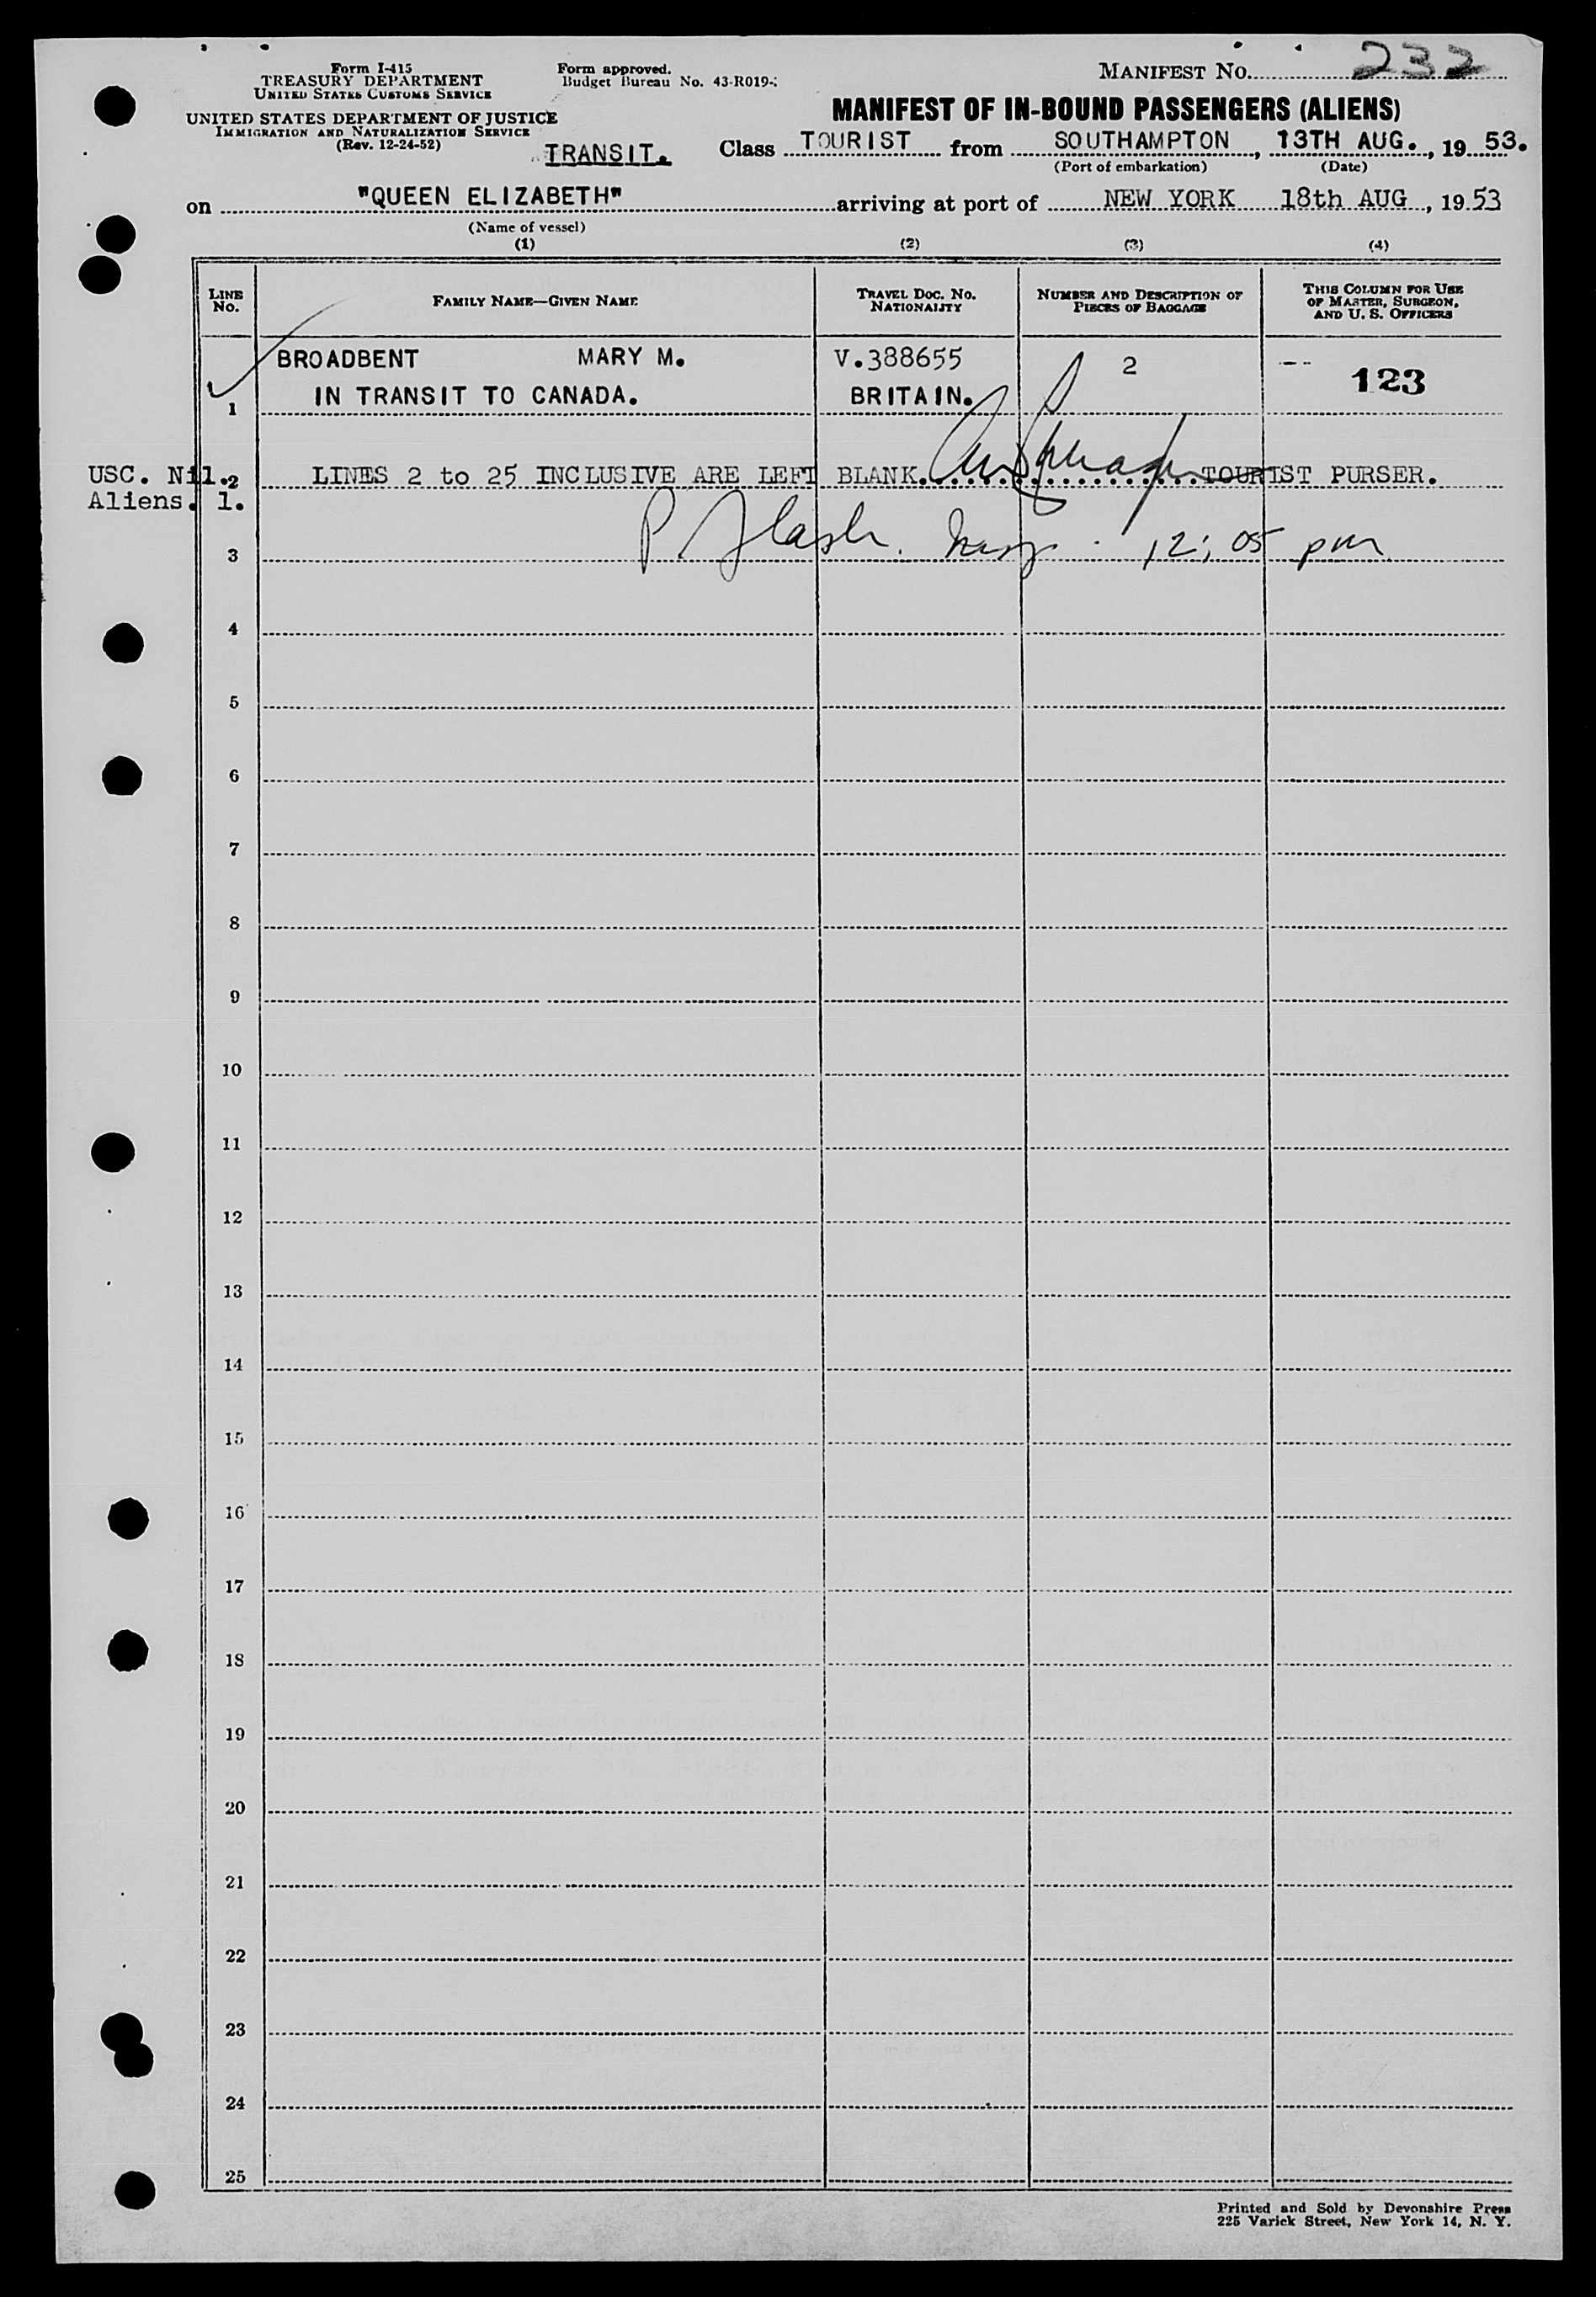 Form I-415
TREASURY DEPARTMENT
UNITED STATES CUSTOMS SERVICE
UNITED STATES DEPARTMENT OF JUSTICE
IMMIGRATION AND NATURALIZATION SERVICE
(Rev. 12-24-52)
Form approved.
Budget Bureau No. 43-R019-
TRANSIT.
MANIFEST No. 232
MANIFEST OF IN-BOUND PASSENGERS (ALIENS)
Class TOURIST from SOUTHAMPTON, 13TH AUG., 19 53.
(Port of embarkation) (Date)
on "QUEEN ELIZABETH" arriving at port of NEW YORK 18th AUG, 19 53
(Name of vessel)
(1) (2) (3) (4)
LINE No. FAMILY NAME—GIVEN NAME TRAVEL DOC. No. NATIONALITY NUMBER AND DESCRIPTION OF PIECES OF BAGGAGE THIS COLUMN FOR USE OF MASTER, SURGEON, AND U. S. OFFICERS
BROADBENT MARY M. V.388655 2 -- 123
1 IN TRANSIT TO CANADA. BRITAIN.
USC. Nil. 2 LINES 2 to 25 INCLUSIVE ARE LEFT BLANK. TOURIST PURSER.
Aliens. 1.
3 12:05 pm
4
5
6
7
8
9
10
11
12
13
14
15
16
17
18
19
20
21
22
23
24
25
Printed and Sold by Devonshire Press
225 Varick Street, New York 14, N. Y.